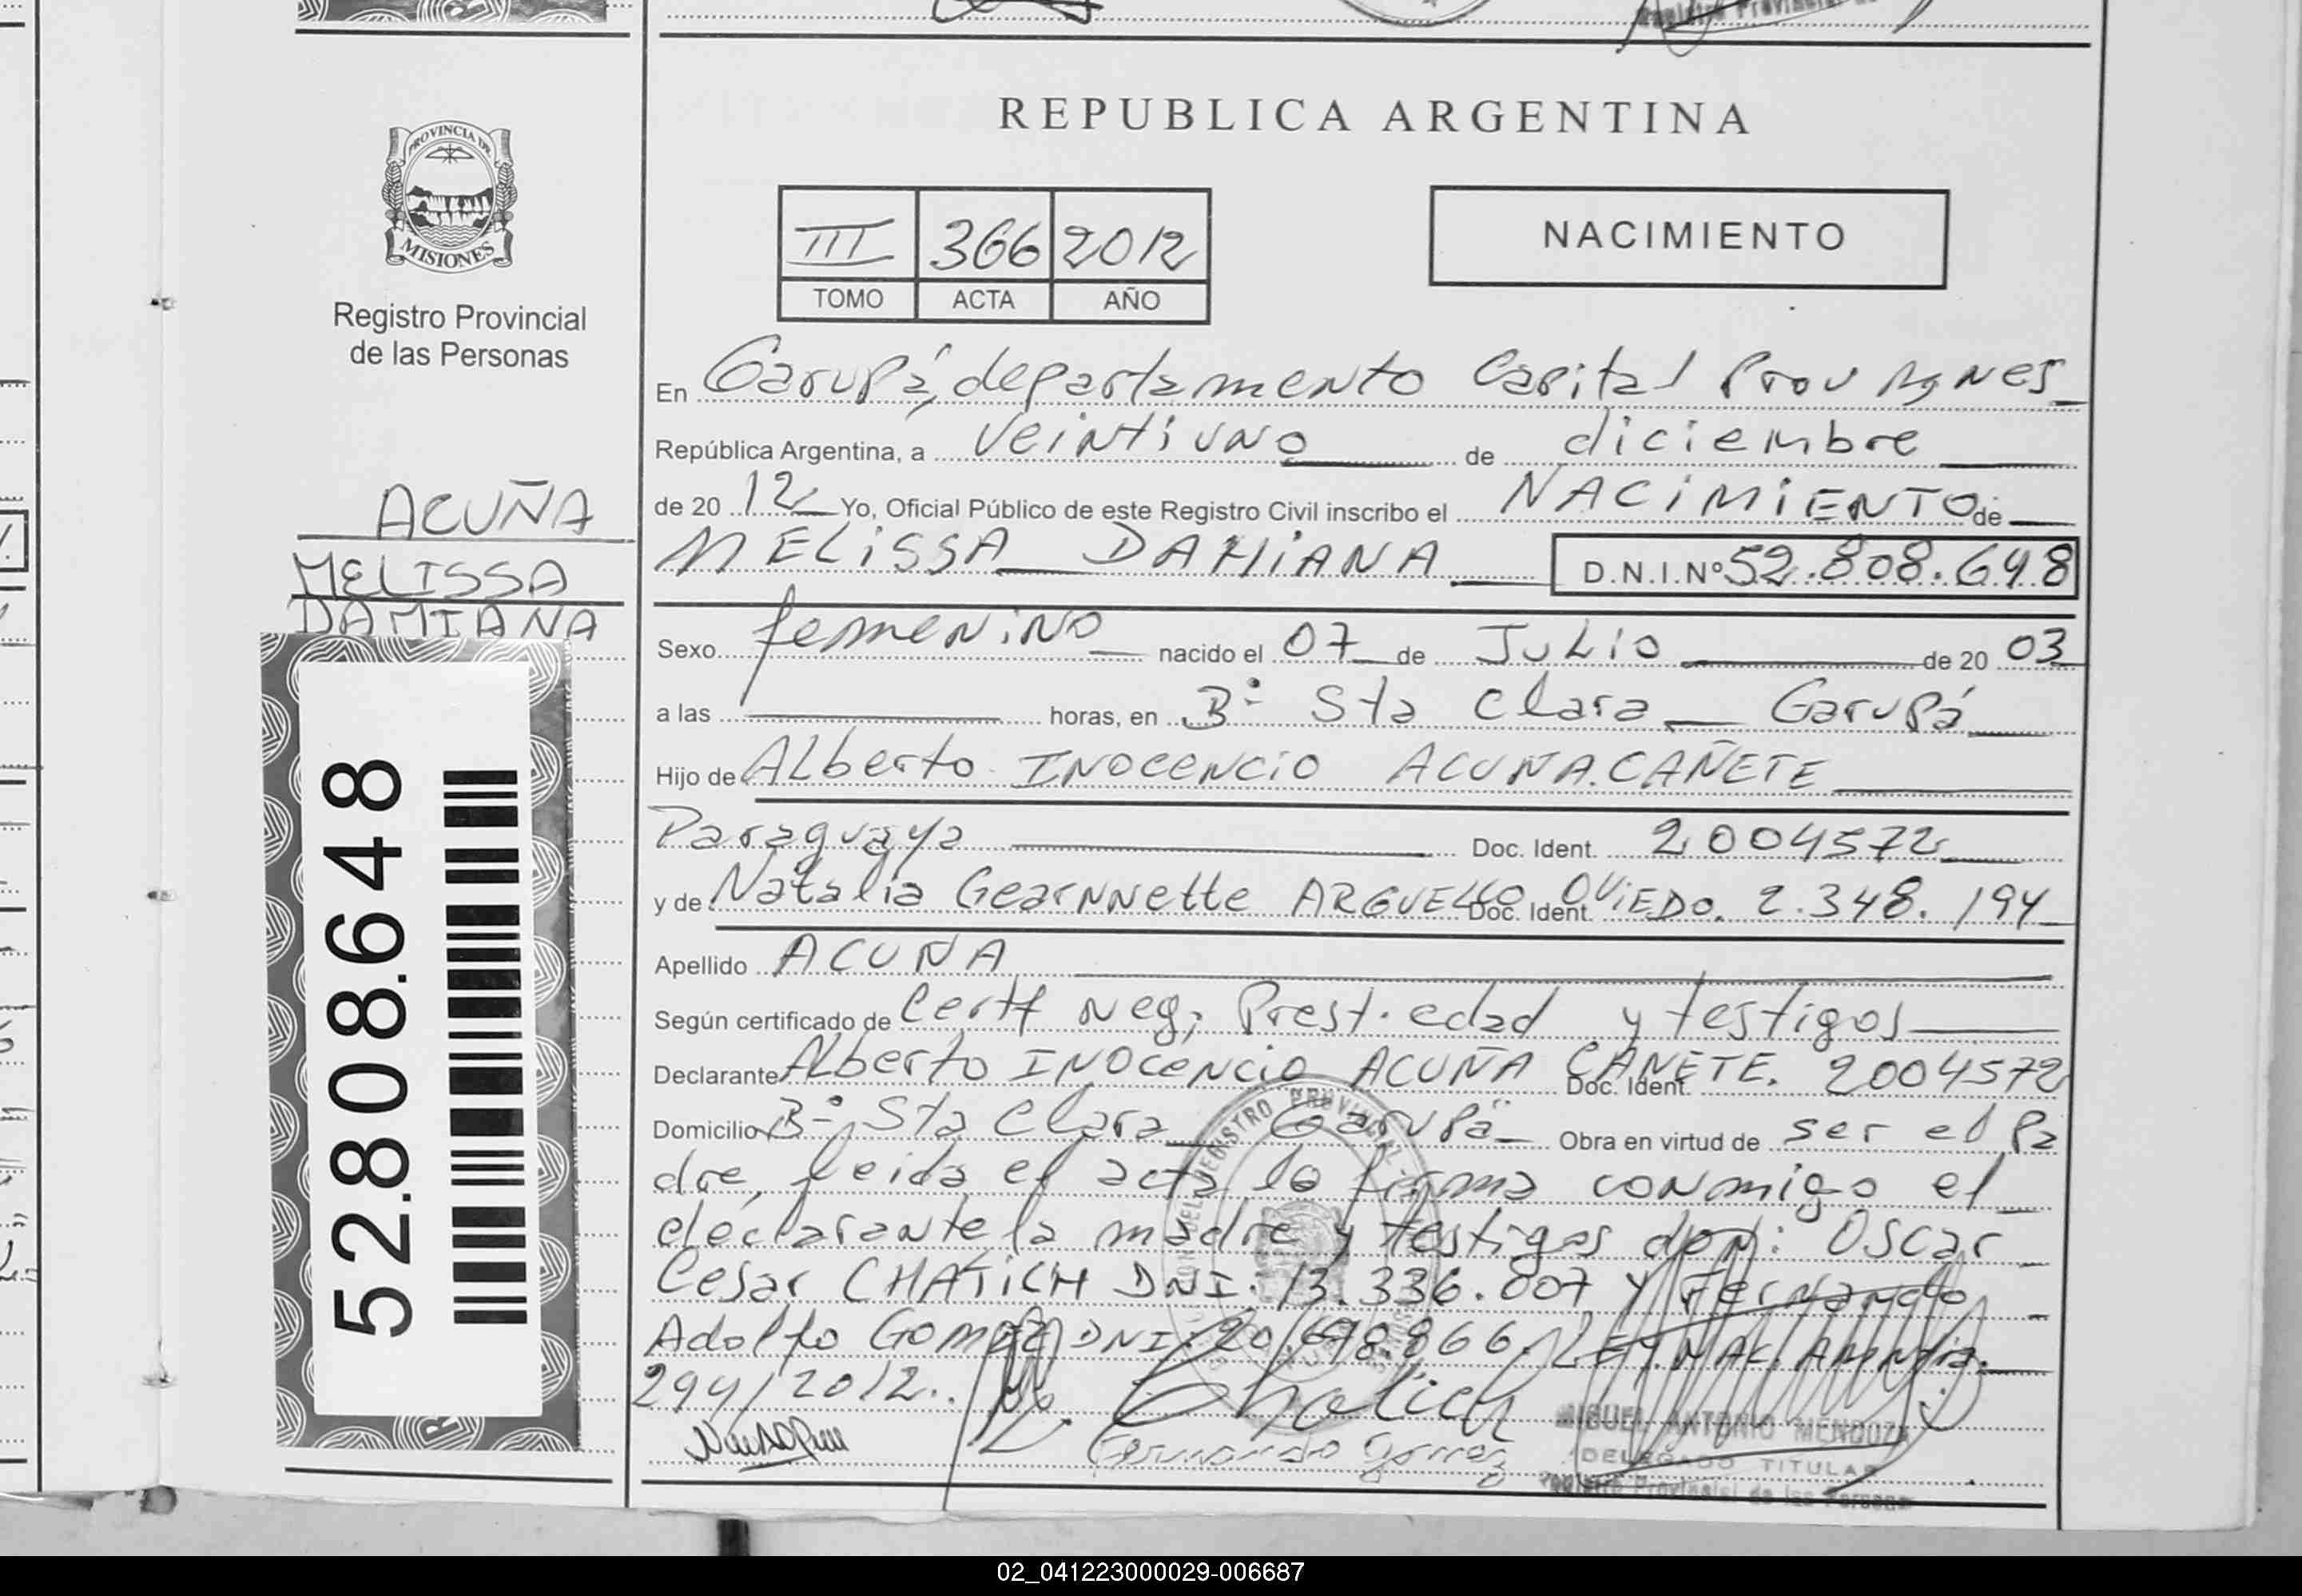 REPUBLICA ARGENTINA
PROVINCIA DE
MISIONES
Registro Provincial
de las Personas
III 366 2012
TOMO ACTA AÑO
NACIMIENTO
En Garupá, departamento Capital Prov
República Argentina, a veintiuno de diciembre
de 20 12 Yo, Oficial Público de este Registro Civil inscribo el NACIMIENTO de
MELISSA DAMIANA D.N.I.Nº 52.808.648
ACUÑA
MELISSA
DAMIANA
52.808.648
Sexo femenino nacido el 07 de Julio de 20 03
a las horas, en Bº Sta Clara Garupá
Hijo de Alberto INOCENCIO ACUÑA CAÑETE
Paraguaya Doc. Ident. 2004572
y de Natalia Gearnnette ARGUELLO OVIEDO. Doc. Ident. 2.348.194
Apellido ACUÑA
Según certificado de Certf Neg, Prest. edad y testigos
Declarante Alberto INOCENCIO ACUÑA CAÑETE. Doc. Ident. 2004572
Domicilio Bº Sta Clara Garupá Obra en virtud de ser el Pa
dre, leida el acta la firma conmigo el
declarante la madre y testigos don: Oscar
Cesar CHATICH DNI: 13.336.007 y Fernando
Adolfo Gomez DNI: 20.698.866. LEY NAC.
294/2012.
Chatich
Fernando Gomez
MIGUEL ANTONIO MENDOZA
DELEGADO TITULAR
Registro Provincial de las Personas
02_041223000029-006687